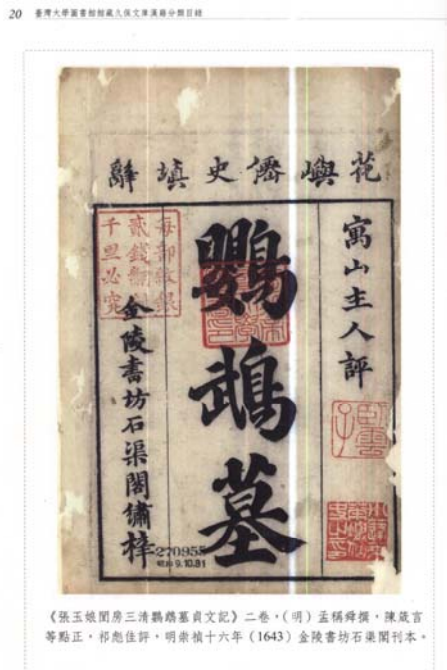 20 臺灣大學圖書館館藏久保文庫漢籍分類目錄
花嶼儕史塡辭
寓山主人評
鸚鵡墓
每部紋銀
貳錢翻
千里必究
金陵書坊石渠閣繡梓
270955
昭和9.10.31
《張玉娘閨房三清鸚鵡墓貞文記》二卷，(明) 孟稱舜撰，陳箴言
等點正，祁彪佳評，明崇禎十六年（1643）金陵書坊石渠閣刊本。